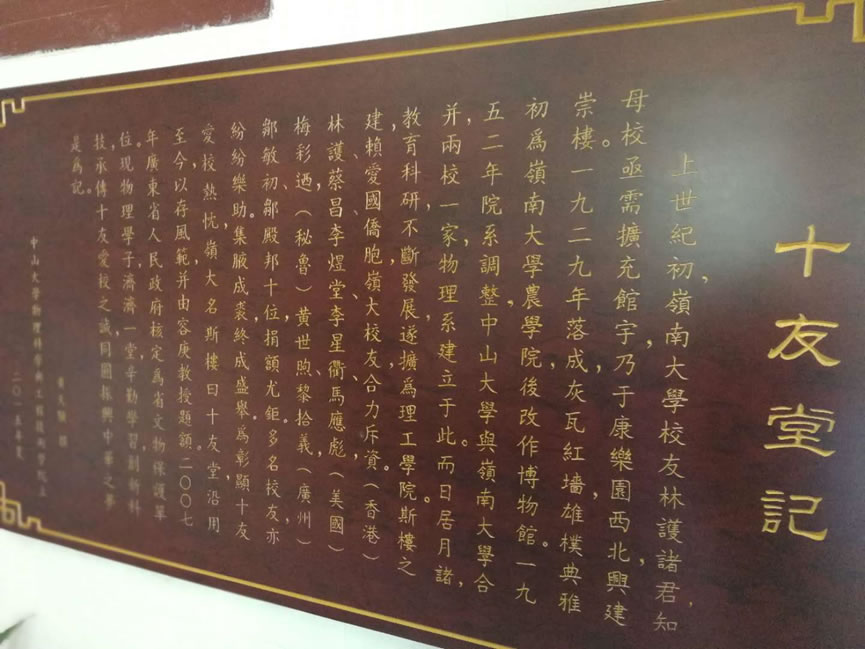 十友堂記
上世紀初,嶺南大學校友林護諸君,知
母校亟需擴充館宇,乃于康樂園西北,興建
崇樓。一九二九年落成,灰瓦紅墻,雄樸典雅
初爲嶺南大學農學院,後改作博物館。一九
五二年院系調整,中山大學與嶺南大學合
并,兩校一家,物理系建立于此。而日居月諸,
教育科研,不斷發展,遂擴爲理工學院。斯樓之
建,賴愛國僑胞、嶺大校友合力斥資。(香港)
林護、蔡昌、李煜堂、李星衢、馬應彪,(美國)
梅彩迺,(秘魯)黄世煦、黎拾義,(廣州)
鄒敏初、鄒殿邦十位捐額尤鉅。多名校友亦
紛紛樂助,集腋成裘,終成盛舉。爲彰顯十友
愛校熱忱,嶺大名斯樓曰十友堂,沿用
至今,以存風範,并由容庚教授題額。二〇〇七
年,廣東省人民政府核定爲省文物保護單
位。現物理學子濟濟一堂,辛勤學習,創新科
技,承傳十友愛校之誠,同圓振興中華之夢
是爲記。
黄天驥 撰
中山大學物理科學與工程技術學院立
二〇一五年夏